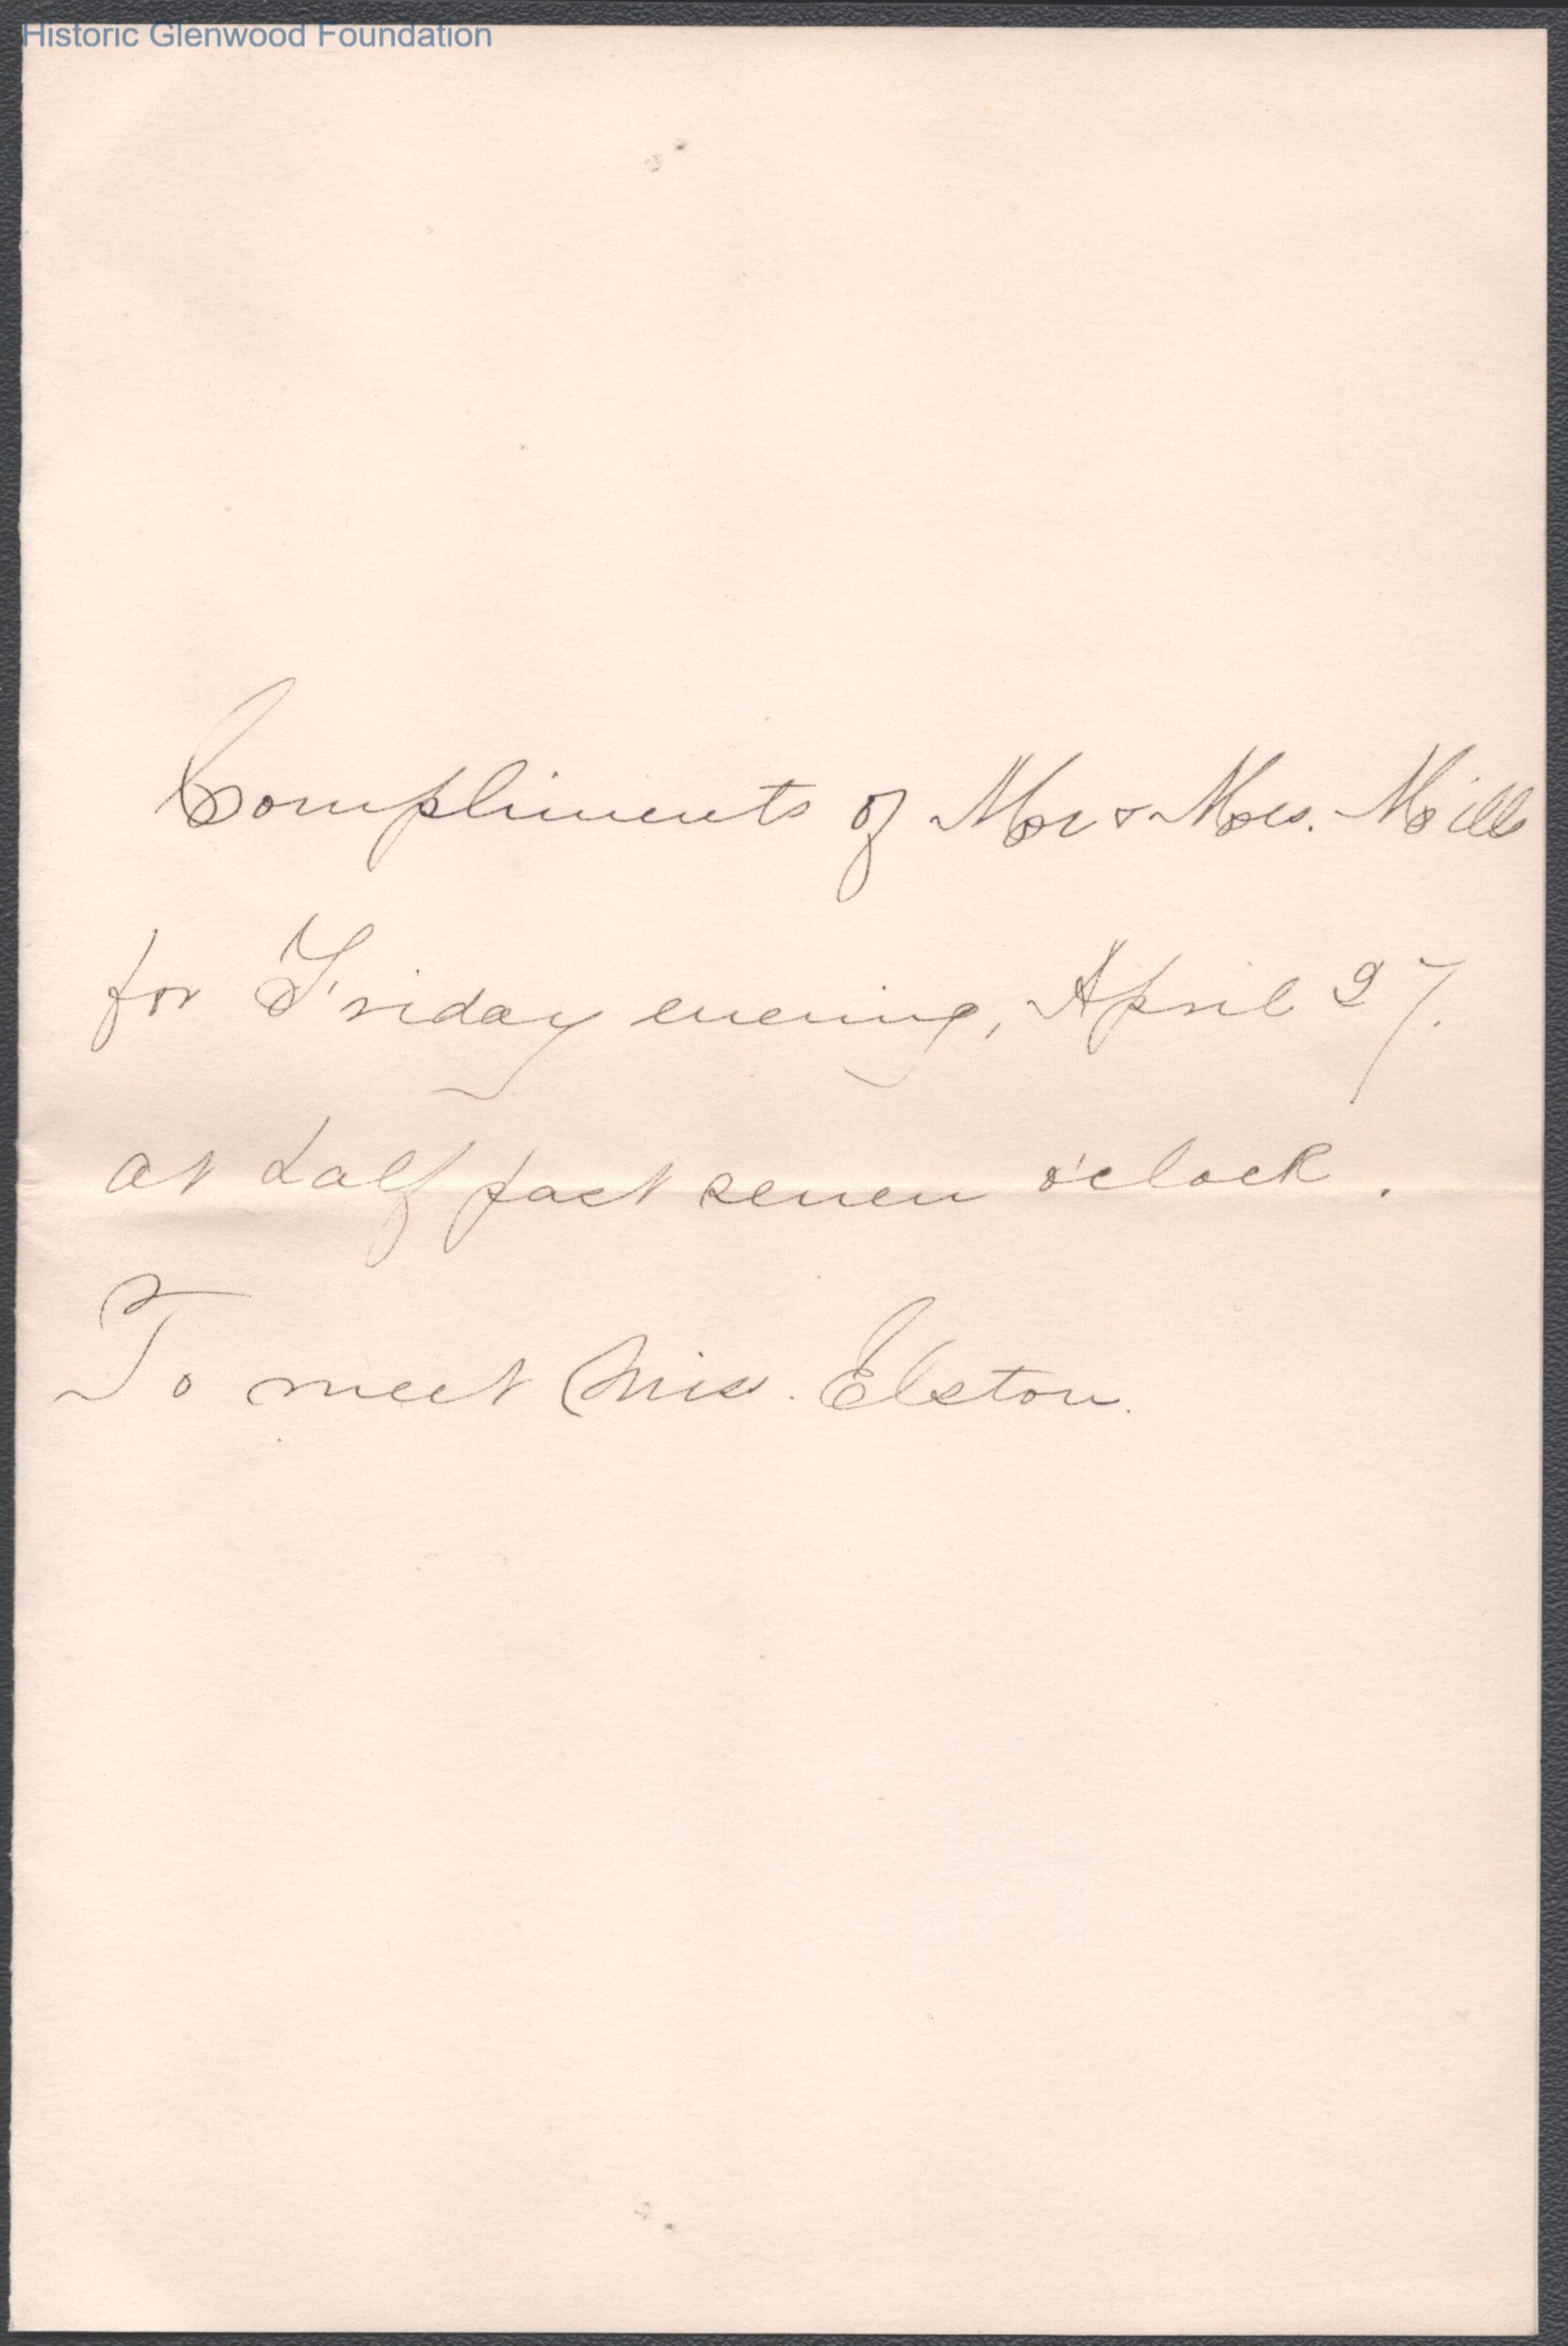 Historic Glenwood Foundation
Compliments of Mr & Mrs. Mills
for Friday evening, April 27.
at half past seven o'clock.
To meet Miss. Elston.